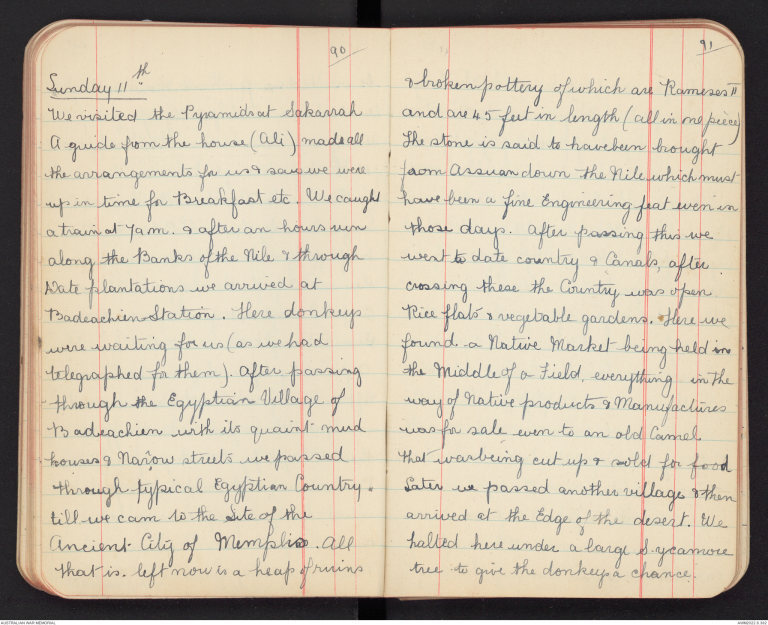 90
Sunday 11th
We visited the Pyramids at Sakarrah
A guide from the house (Ali) made all
the arrangements for us & saw we were
up in time for Breakfast etc. We caught
a train at 7am. & after an hours run
along the Banks of the Nile & through
Date plantations we arrived at
Badeachien Station. Here donkeys
were waiting for us (as we had
telegraphed for them). After passing
through the Egyptian Village of
Badeachien with its quaint mud
houses & Narrow streets we passed
through typical Egyptian Country.
till we cam to the Site of the
Ancient City of Memphis. All
that is. left now is a heap of ruins
91
& broken pottery of which are Rameses II
and are 45 feet in length (all in one piece)
The stone is said to have been brought
from Assuan down the Nile which must
have been a fine Engineering feat even in
those days. After passing this we
went to date country & Canals, after
crossing these the Country was open
Rice flats & vegetable gardens. Here we
found a Native Market being held in
the Middle of a Field, everything in the
way of Native products & Manufactures
was for sale even to an old Camel
that was being cut up & sold for food
Later we passed another village & then
arrived at the Edge of the desert. We
halted here under a large Sycamore
tree to give the donkeys a chance.
AUSTRALIAN WAR MEMORIAL